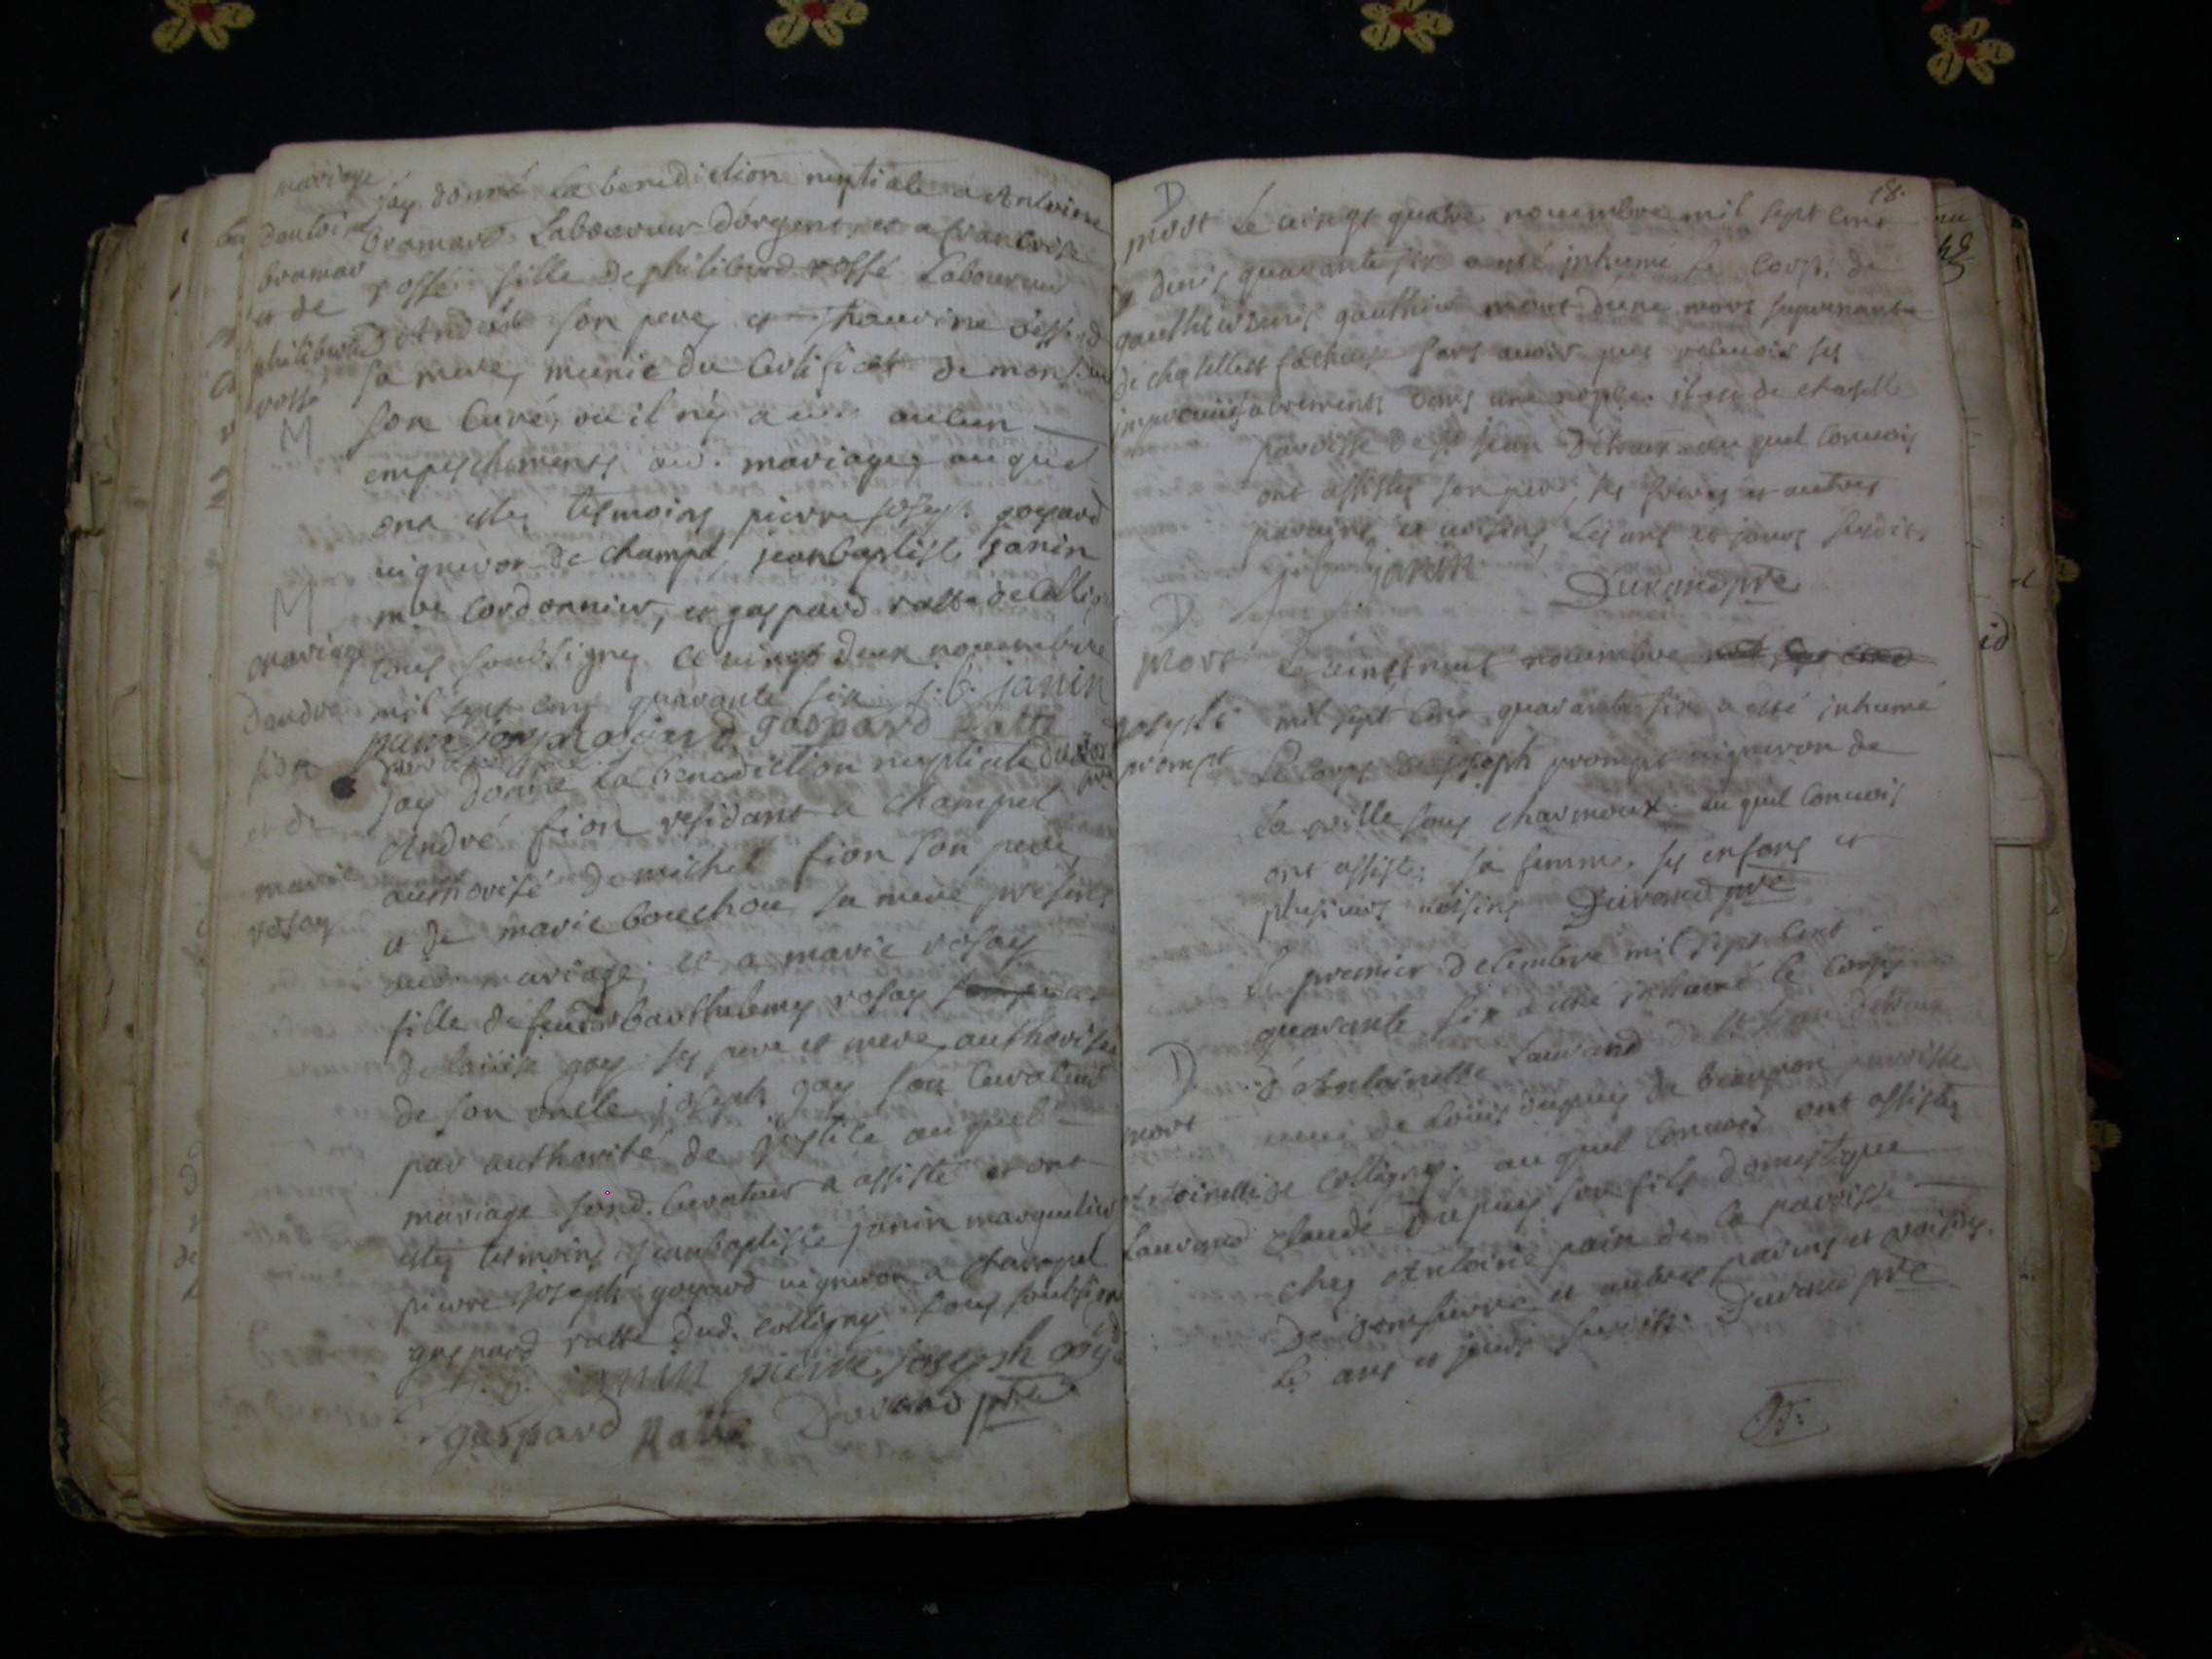 mariage
d'antoine
bramard
et de
philiberte
rossé
M
jay donné La benediction nuptiale a Antoine
bramard Laboureur d'orgent, et a francoise
rossé fille de philiberd rossé Laboureur
son pere, et
sa mere, munie du Certificat de monsieur
son Curé, ou il n'y a eu aucun
empeschements au mariage, auquel
ont estes tesmoins pierre joseph goyard
vigneron de champel, jeanbaptiste janin
mre Cordonnier, et gaspard ratte de Colligny
tous soubsignes ce vingt deux nouembre
mil sept cens quarante six j. b. janin
pierre joseph goiard gaspard Ratte
M
mariage
dandre
fion
et de
marie
rosay
jay donné La benediction nuptiale
André fion residant a champel
authorisé de michel fion son pere,
et de marie bouchou sa mere presents
aud. mariage; et a marie rosay
fille de feu barthelemy rosay
de Louise gay ses pere et mere, authorisée
de son oncle joseph gay son Curateur
par authorité de justice auquel
mariage led. Curateur a assisté et ont
estes tesmoins jeanbaptiste janin marguelier
pierre joseph goyard vigneron a champel
gaspard ratte dud. Colligny tous soubsignes
j. b. janin pierre joseph goyard
gaspard Ratte Durand pre
18.
D
mort
de denis
gauthier
de chatellet
Le uingt quatre nouembre mil sept cens
quarante six a esté inhumé le Corps de
denis gauthier mort d'une mort suprenante
facheuse sans auoir peu receuoir ses
sacrements dans une
paroisse de st jean d'étreux auquel Conuois
ont assistes son pere, ses freres et autres
parains et uoisins, Les ans et jours susdits
j. b. janin
Durand pre
D
mort
joseph
prompt
Le uint huit nouembre
mil sept cens quarante six a esté inhumé
Le corps de joseph prompt uigneron de
La ville sous charmoux. auquel Conuois
ont assistes sa femme. ses enfans et
plusieurs uoisins Durand pre
D
mort
Antoinette
Laurand
Le premier decembre mil sept cent
quarante six a esté inhumé le Corps
d'Antoinette Laurand de st jean détreux
ueuue de Louis dupuis de beaupont paroisse
de Colligny. auquel Conuois ont assistes
claude Dupuis son fils domestique
chez Antoine pain de la paroisse
de domsurre et autres parins et voisins.
Les ans et jours susdits. Durand pre